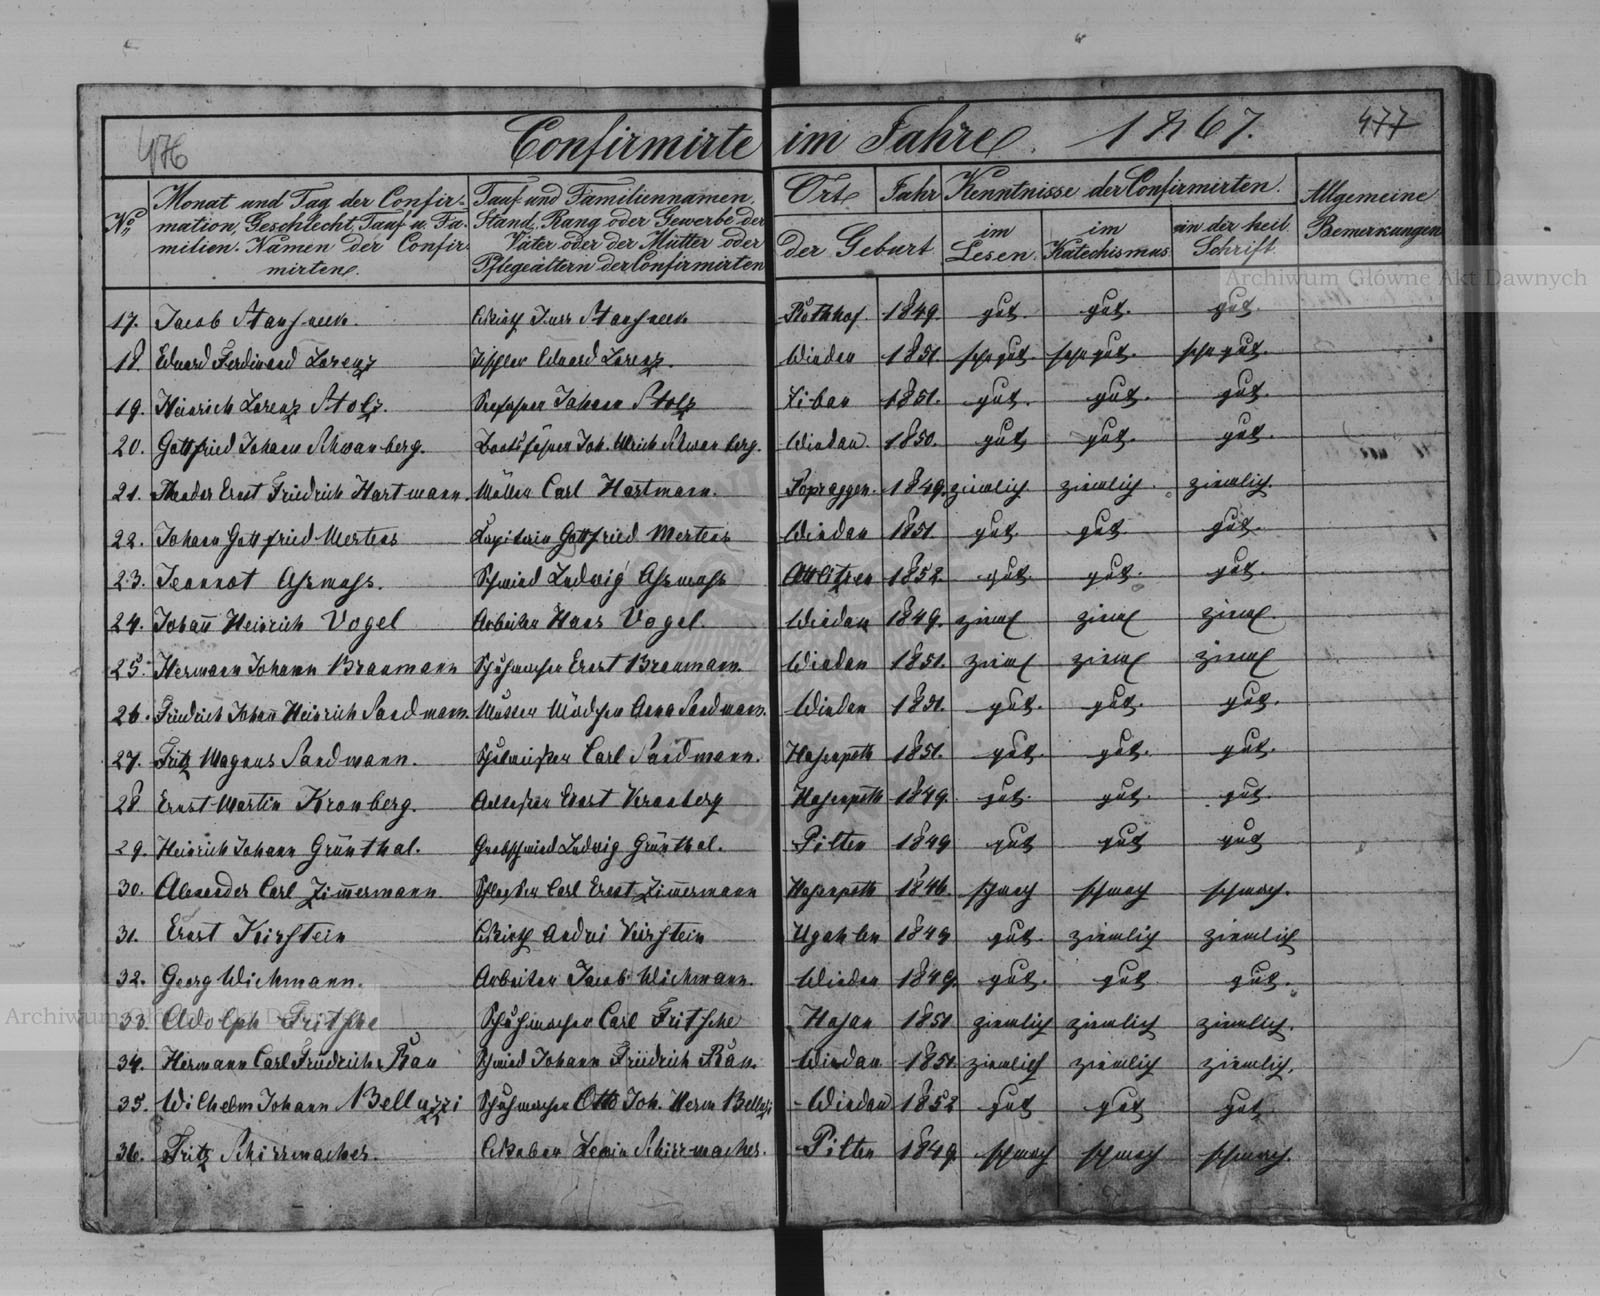 476
477
Confirmirte im Jahre 1867.
No
Monat und Tag der Confir-
mation, Geschlecht, Tauf u. Fa-
milien-Namen der Confir-
mirten.
Tauf und Familiennamen,
Stand, Rang oder Gewerbe der
Väter oder der Mütter oder
Pflegeältern der Confirmirten
Ort
Jahr
der Geburt
Kenntnisse der Confirmirten.
im
Lesen.
im
Katechismus
in der heil.
Schrift.
Allgemeine
Bemerkungen
Archiwum Główne Akt Dawnych
17. Jacob 1849. gut. gut. gut.
18. Eduard Ferdinand Lorenz Tischler Eduard Lorenz. Windau 1851. sehr gut. sehr gut. sehr gut.
19. Heinrich Lorenz Stolz. Johann Stolz Libau 1851. gut. gut. gut.
20. Gottfried Johann Schwanberg. Joh. Ulrich Schwanberg. Windau. 1850. gut gut. gut.
21. Theodor Ernst Friedrich Hartmann. Müller Carl Hartmann. Popraggen. 1849. ziemlich ziemlich. ziemlich.
22. Johann Gottfried Mertens Kapitain Gottfried Mertens Windau 1851. gut. gut. gut.
23. Jeannot Schmied Ludwig 1852. gut. gut. gut.
24. Johañ Heinrich Vogel Arbeiter Hans Vogel. Windau 1849. zieml zieml zieml.
25. Hermann Johann Braumann Schuhmacher Ernst Braumann Windau 1851. zieml zieml zieml
26. Friedrich Johañ Heinrich Sandmann. Mädchen Anna Sandmann. Windau 1851. gut. gut. gut.
27. Fritz Magnus Sandmann. Carl Sandmann. Hasenpoth 1851. gut. gut. gut.
28 Ernst Martin Kronberg. Ernst Kronberg Hasenpoth 1849. gut. gut. gut.
29. Heinrich Johann Grünthal. Grobschmied Ludwig Grünthal. Pilten 1849 gut gut gut
30. Alexander Carl Zim̄ermann. Carl Ernst Zim̄ermann Hasenpoth 1846. schwach schwach schwach.
31. Ernst Kirstein Andrei Kirstein Ugahlen 1849 gut. ziemlich ziemlich
32. Georg Wichmann. Arbeiter Jacob Wichmann. Windau 1849. gut. gut gut.
33. Adolph Fritsche Schuhmacher Carl Fritsche Hasau 1851 ziemlich ziemlich ziemlich.
34. Hermann Carl Friedrich Rau Schmied Johann Friedrich Rau. Windau 1851. ziemlich ziemlich ziemlich.
35. Wilhelm Johann Belluzzi Schuhmacher Otto Joh. Herm Belluzzi Windau 1852 gut gut gut
36. Fritz Schirrmacher. Schirrmacher. Pilten 1849 schwach schwach schwach.
Archiwum Główne Akt Dawnych